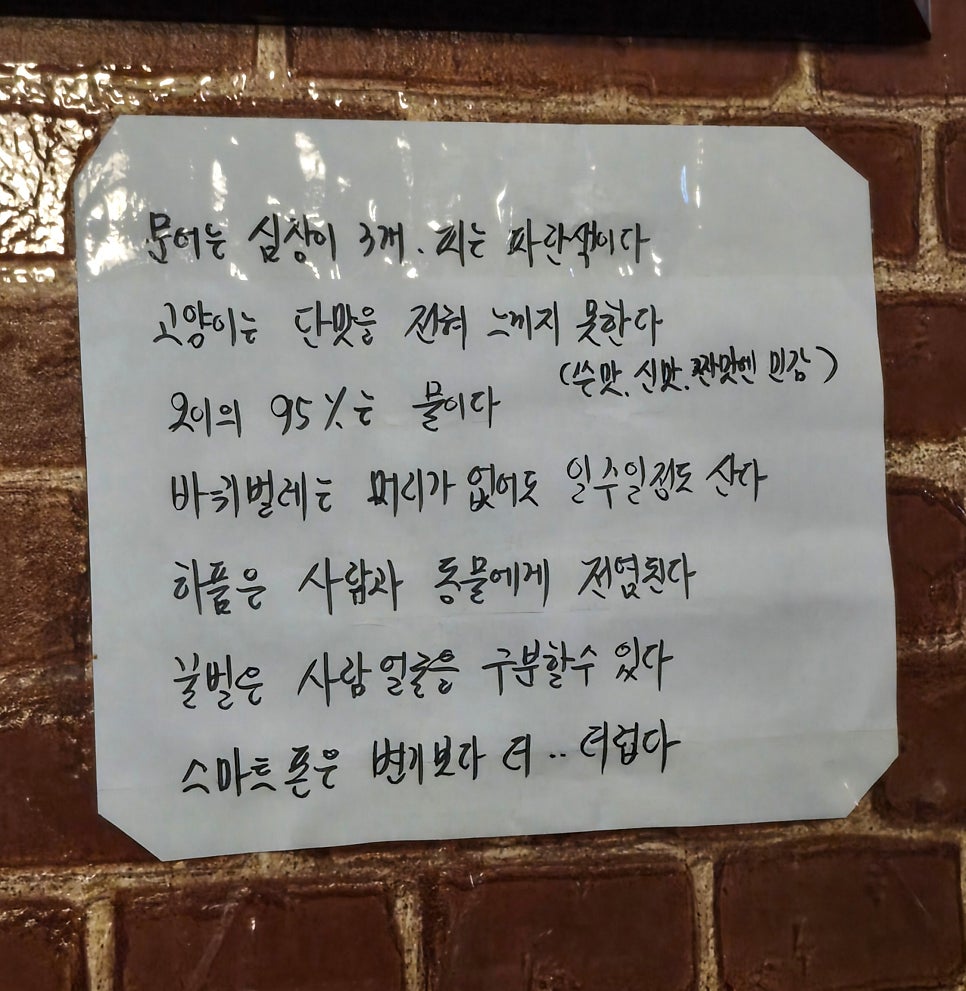 문어는 심장이 3개. 피는 파란색이다
고양이는 단맛을 전혀 느끼지 못한다
(쓴맛. 신맛. 짠맛엔 민감)
오이의 95%는 물이다
바퀴벌레는 머리가 없어도 일주일정도 산다
하품은 사람과 동물에게 전염된다
꿀벌은 사람 얼굴을 구분할수 있다
스마트폰은 변기보다 더.. 더럽다